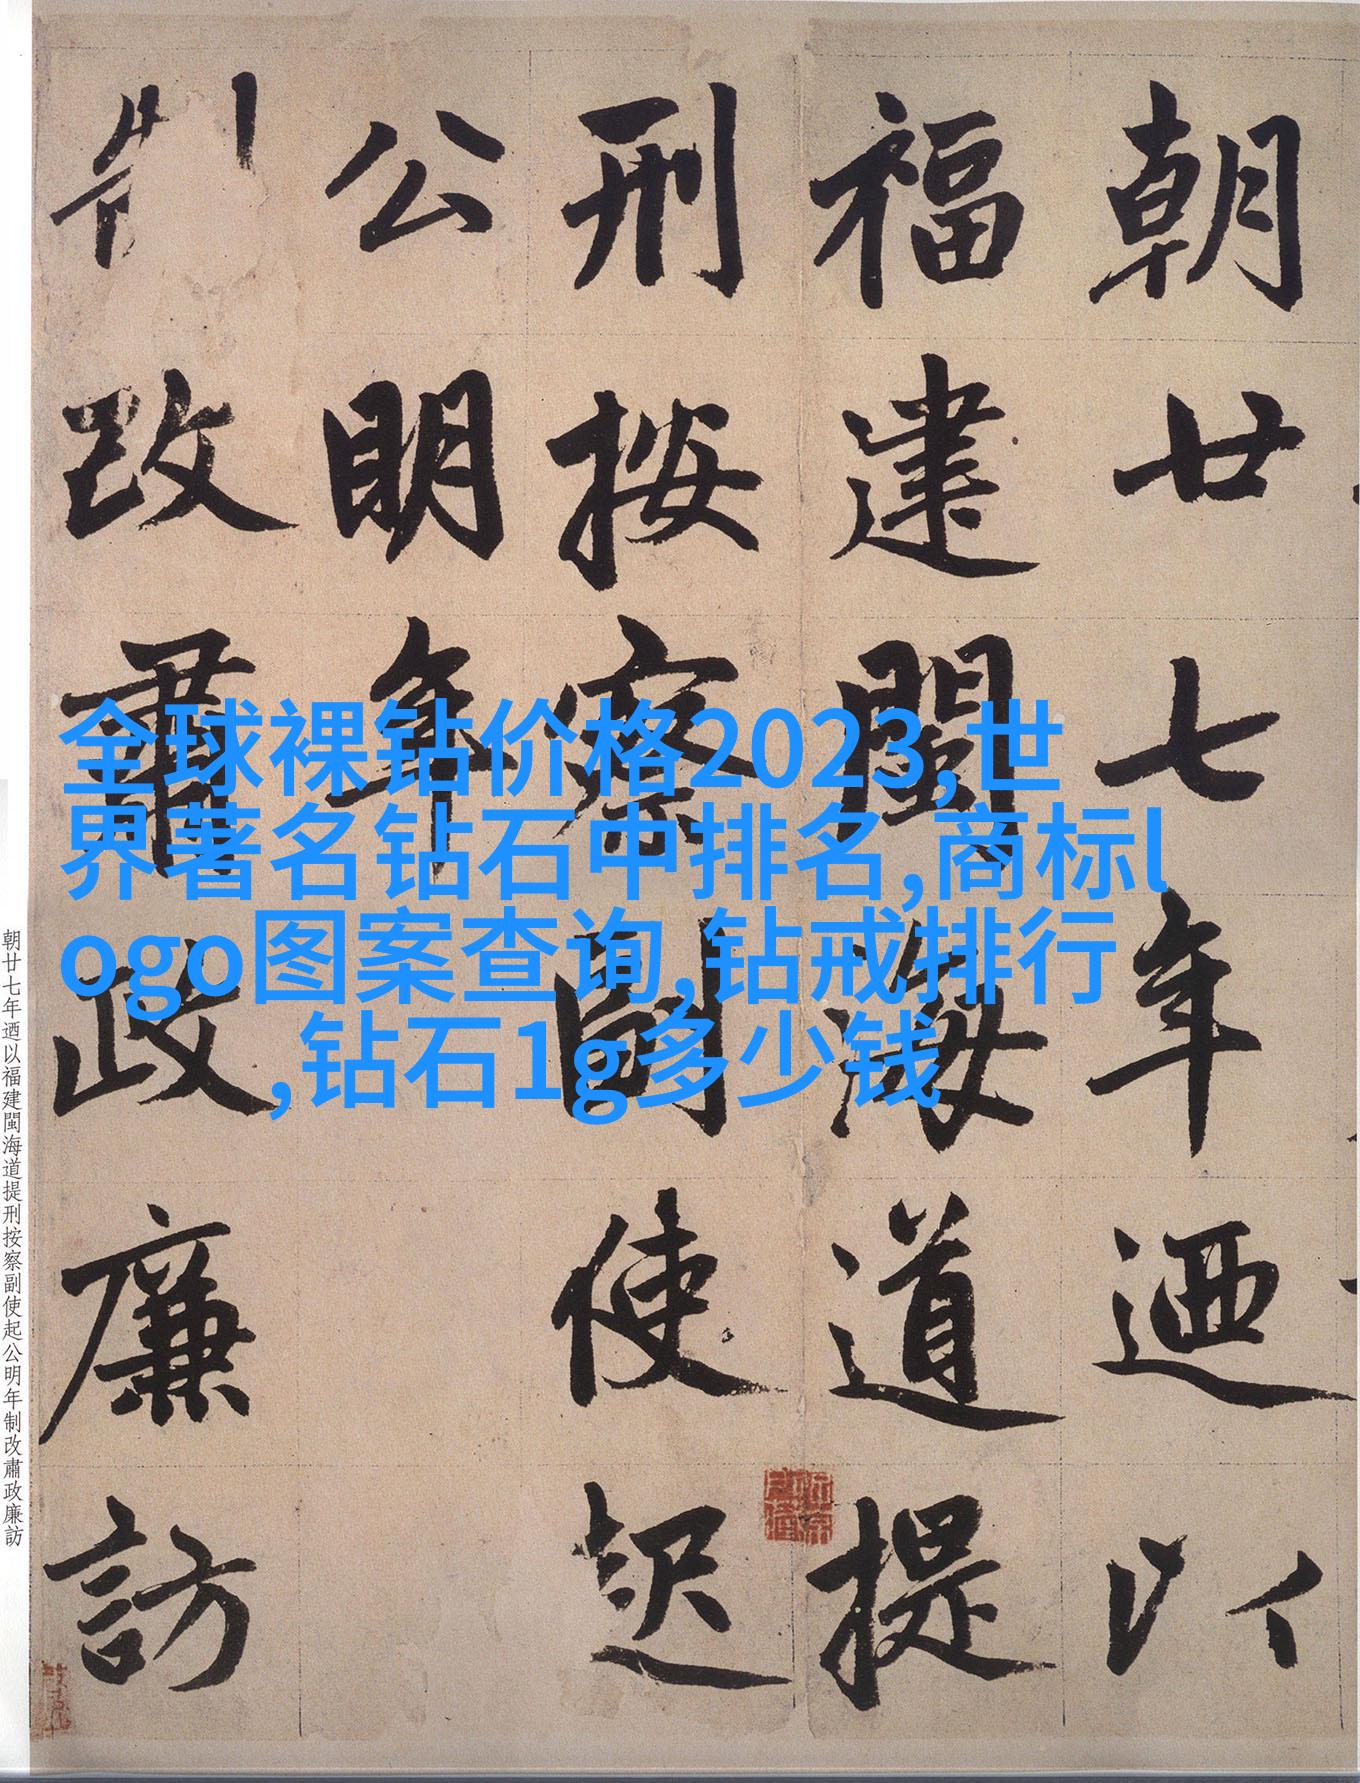 朝廿七年迺以
福建閩海道提
刑按察副使起
公明年
制改肅政廉訪
全球裸钻价格2023,世
界著名钻石中排名,商标l
ogo图案查询,钻戒排行
,钻石1g多少钱
朝廿七年迺以福建閩海道提刑按察副使起公明年制改肅政廉訪